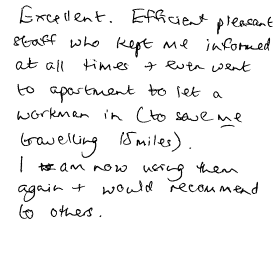 Excellent. Efficient pleasant
staff who kept me informed
at all times + even went
to apartment to let a
workman in (to save me
travelling 15 miles).
I am now using them
again + would recommend
to others.